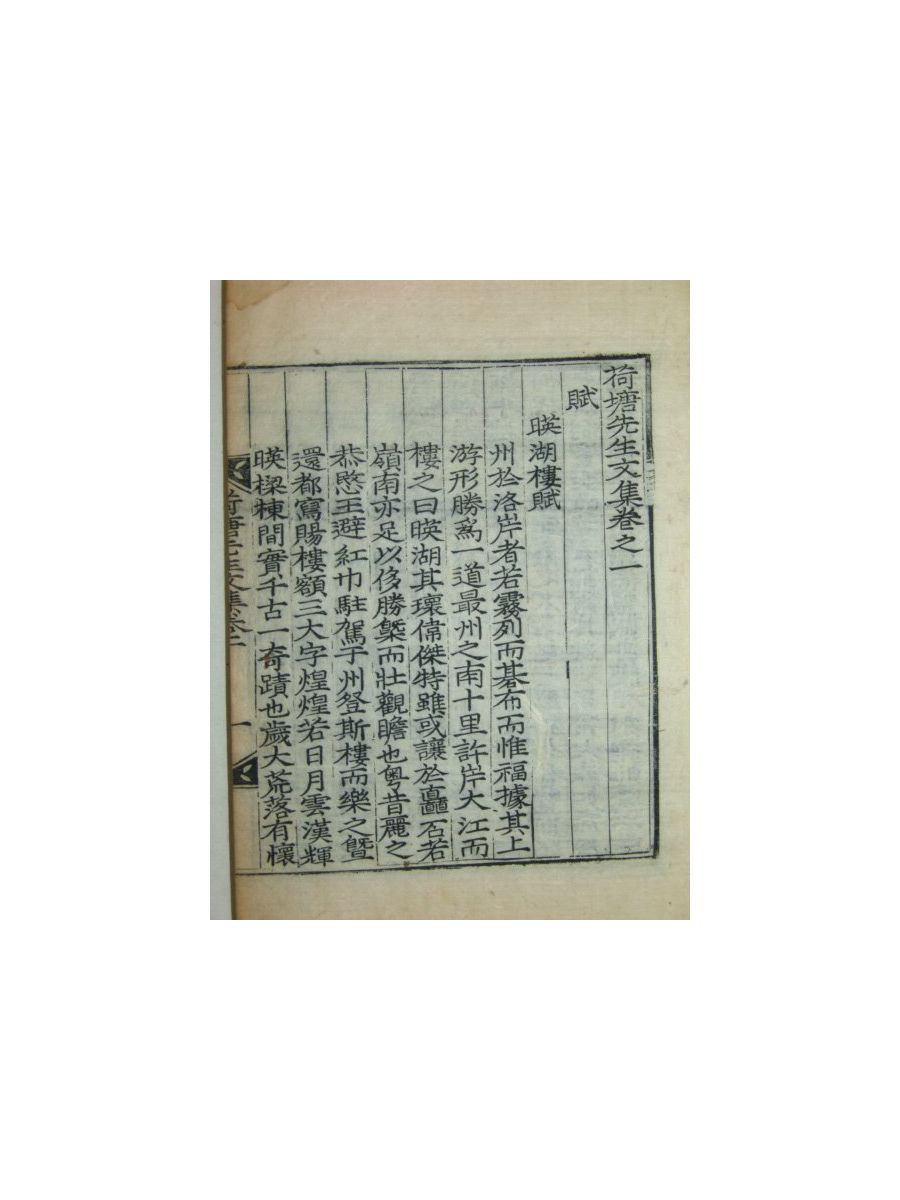 荷塘先生文集卷之一
賦
暎湖樓賦
州於洛岸者若霧列而碁布而惟福據其上
游形勝爲一道最州之南十里許岸大江而
樓之曰暎湖其瓌偉傑特雖或讓於矗石若
嶺南亦足以侈勝槩而壯觀瞻也粤昔麗之
恭愍王避紅巾駐駕于州登斯樓而樂之曁
還都寫賜樓額三大字煌煌若日月雲漢輝
暎樑棟間實千古一奇蹟也歲大荒落有懷
荷塘先生文集卷一
一